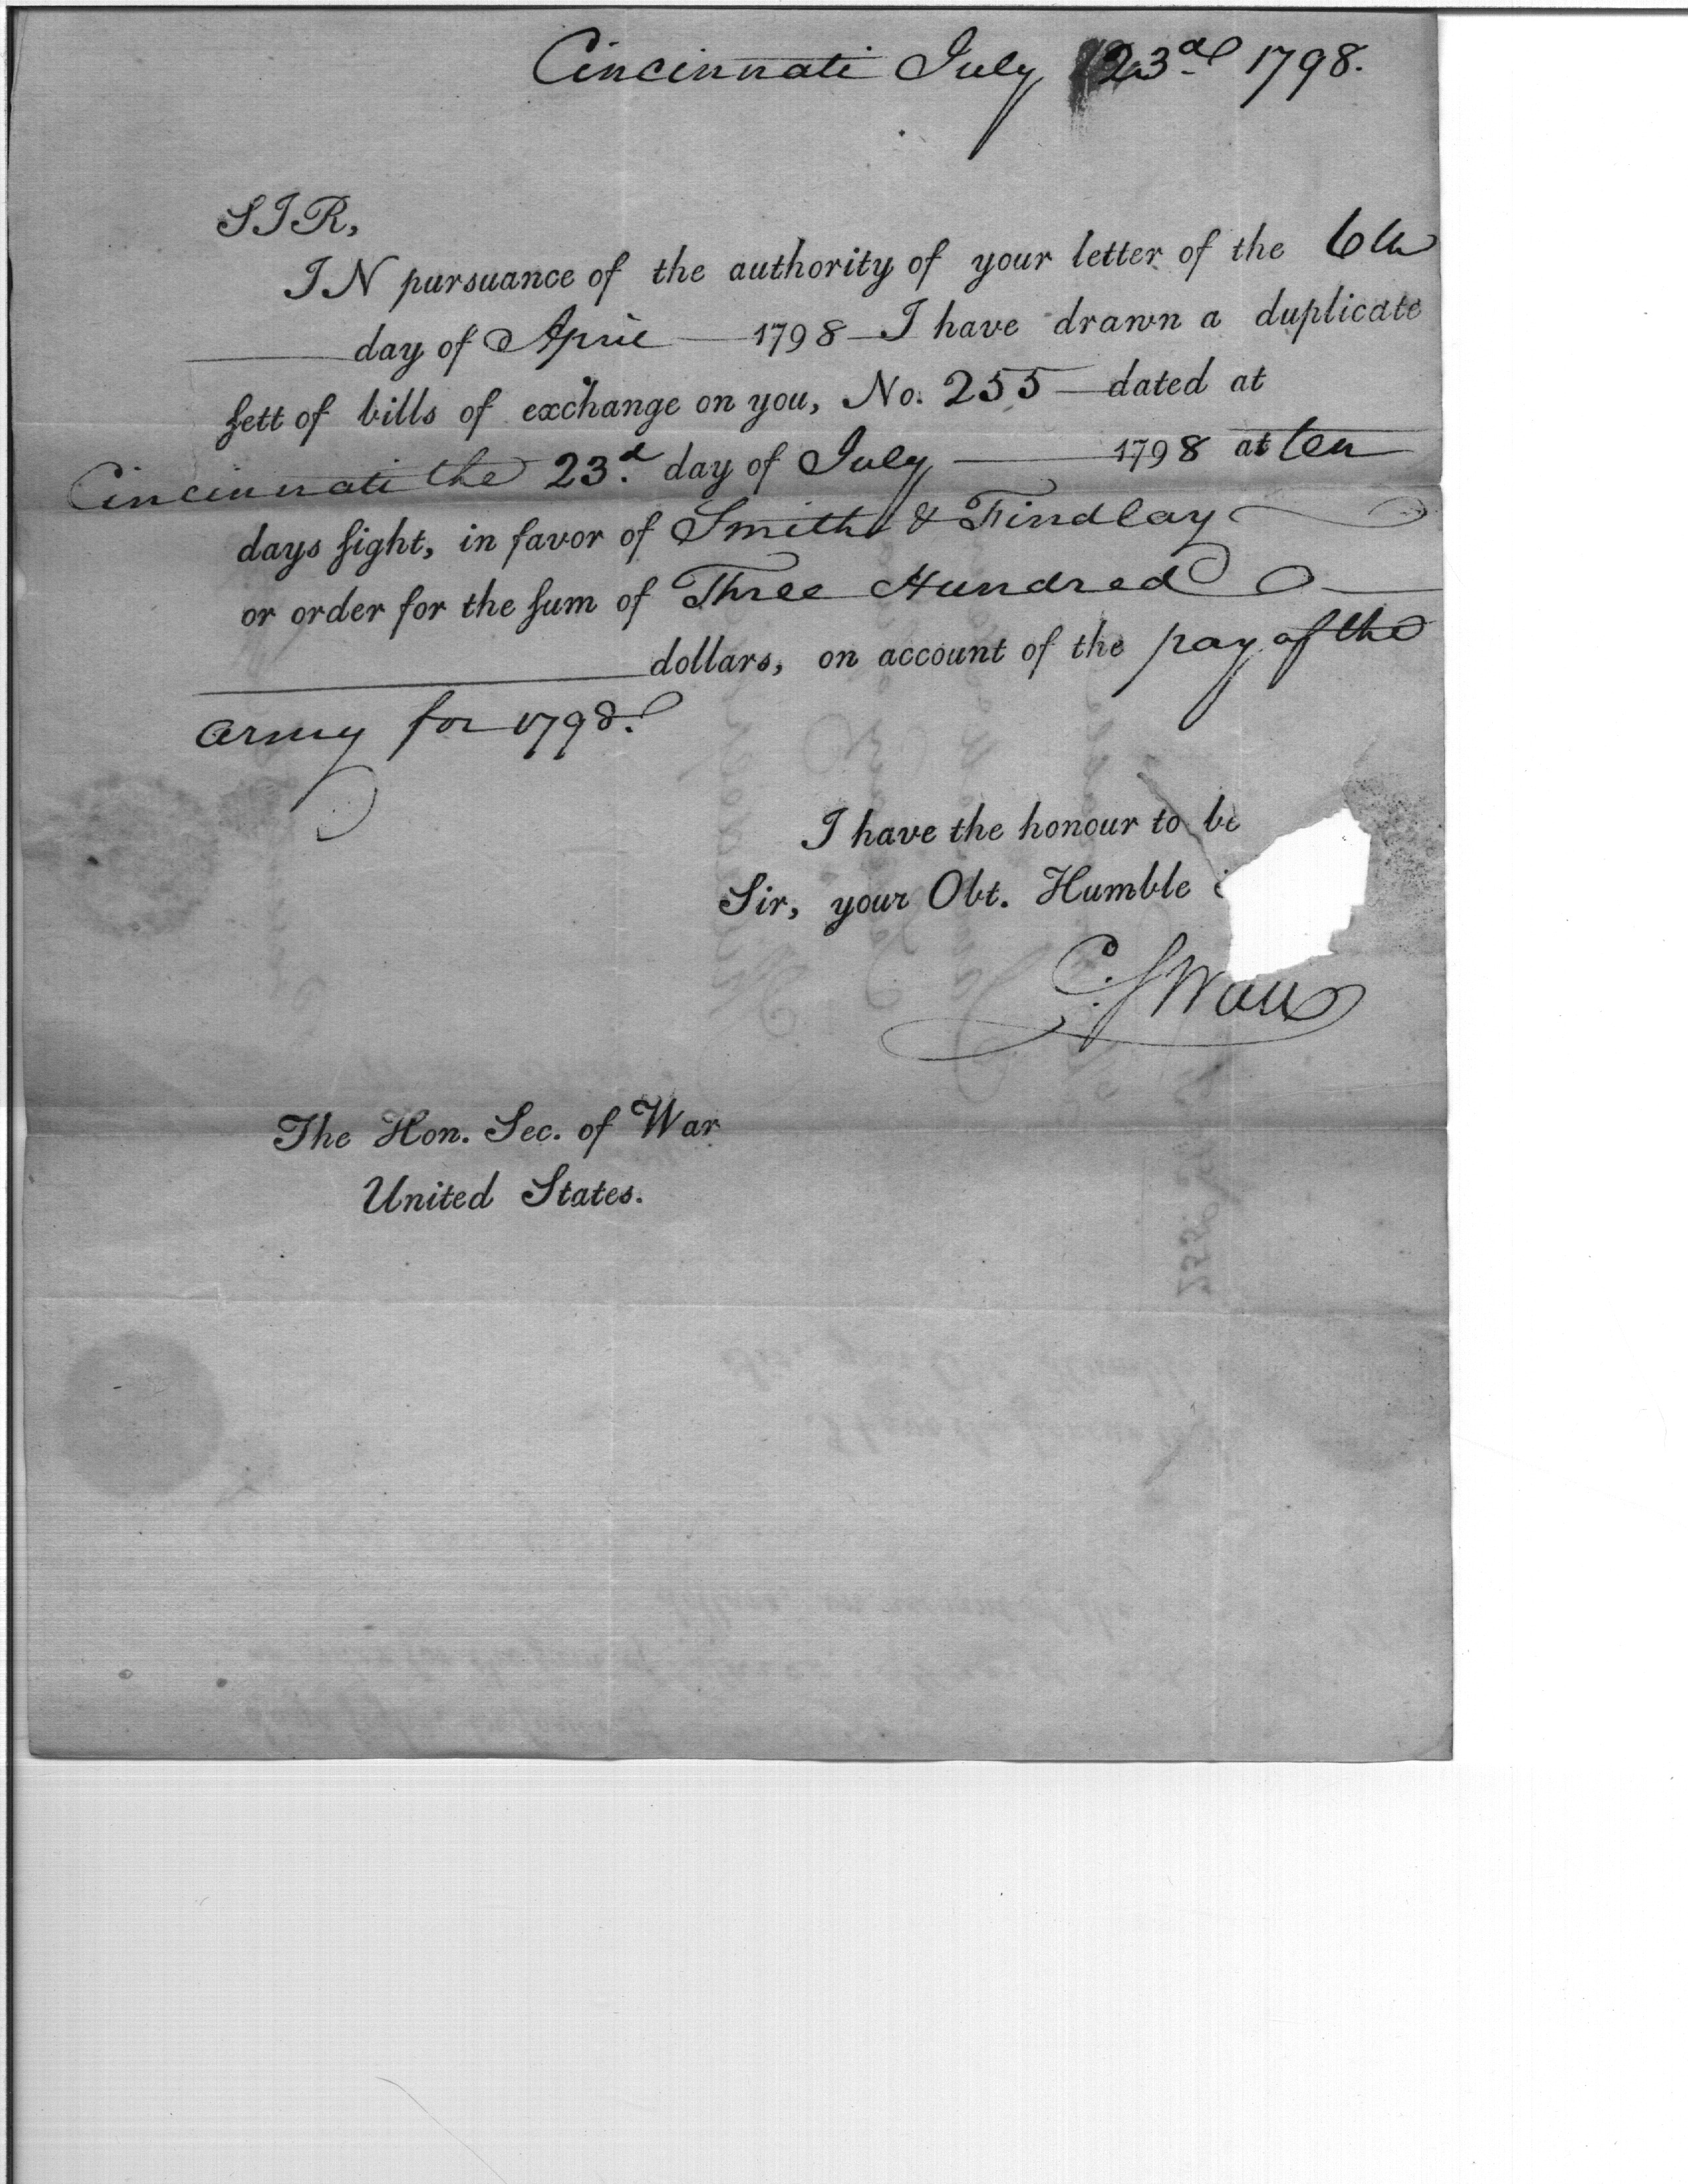 Cincinnati July 23d 1798.
SIR,
IN pursuance of the authority of your letter of the 6th
day of April 1798 I have drawn a duplicate
sett of bills of exchange on you, No. 255 dated at
Cincinnati the 23.d day of July 1798 at ten
days sight, in favor of Smith & Findlay
or order for the sum of Three Hundred
dollars, on account of the pay of the
army for 1798.
I have the honour to be
Sir, your Obt. Humble
C. Swan
The Hon. Sec. of War
United States.